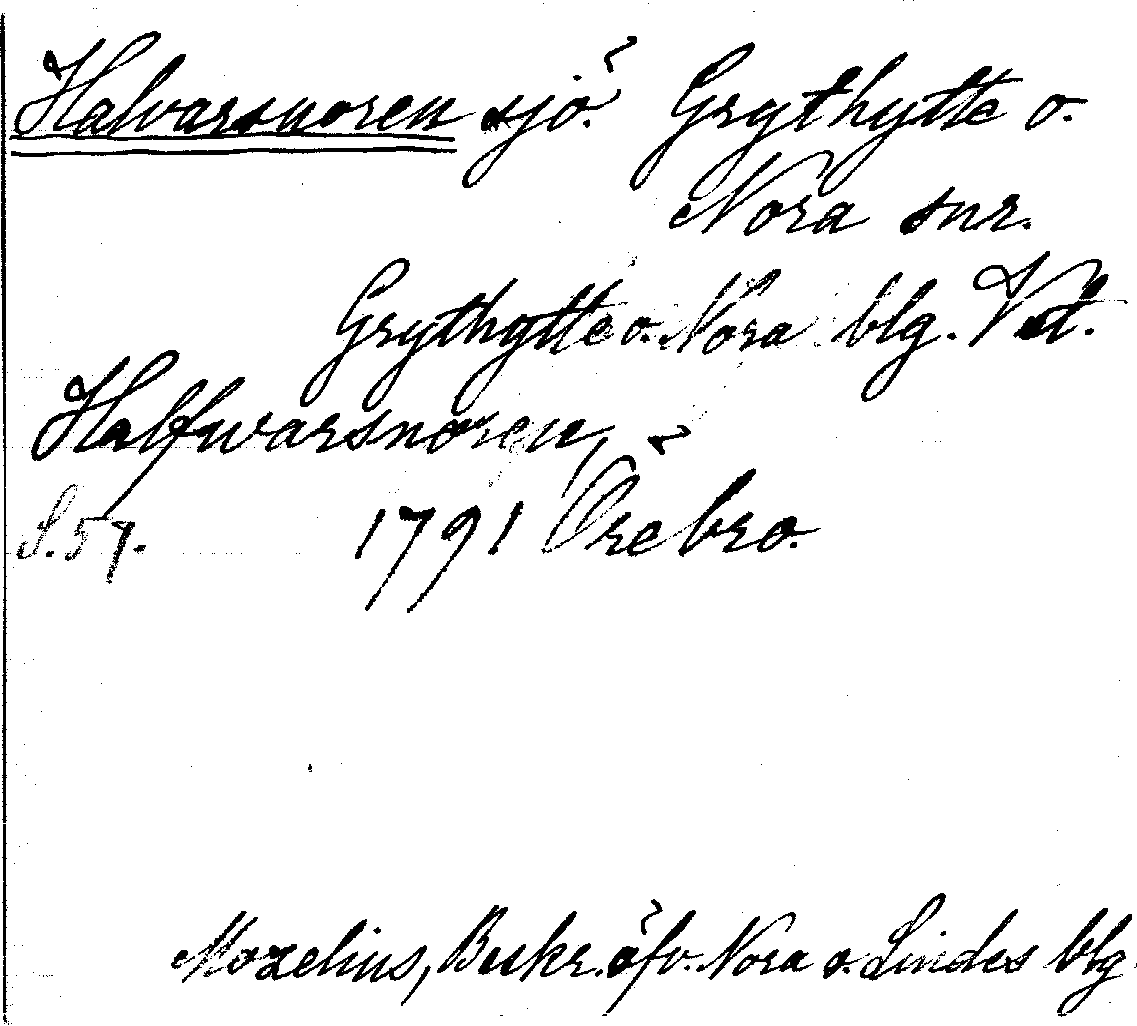 Halvarsnoren sjö. Grythytte o.
Nora snr.
Grythytte o. Nora blg. Vst.
Halfwarsnoren,
S. 57. 1791 Örebro.
Mozelius, Beskr. öfv. Nora o. Lindes blg